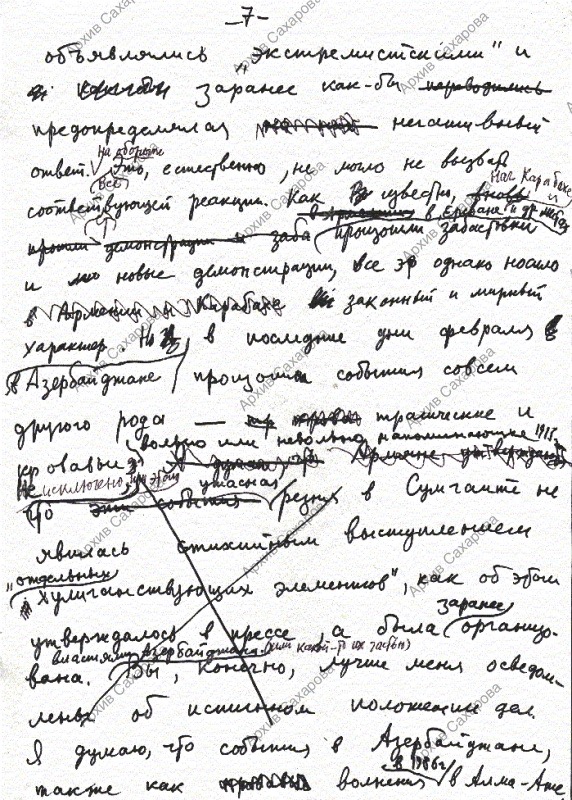 -7-
объявлялись „экстремистскими" и
заранее как-бы переводились
предопределялся негативный
На обороте
ответ. Это, естественно, не могло не вызвать
Все
Наг. Карабахе,
соответствующей реакции. Как известно, вновь и
в Ереване и др. местах
прошли демонстрации и заба произошли забастовки
и новые демонстрации, все это однако носило
в Армении и Карабахе законный и мирный
характер. Но в последние дни февраля в
в Азербайджане произошли события совсем
другого рода — трагические и
вольно или невольно напоминающие 1915
кровавые, Я думаю, что Армяне утверждают
Не исключено, при этом ужасная
что эти события резня в Сумгаите не
явилась стихийным выступлением
„отдельных
хулиганствующих элементов", как об этом
заранее
утверждалось в прессе, а была организо-
властями Азербайджана (или какой-то их частью)
вана. Вы, конечно, лучше меня осведом-
лены об истинном положении дел.
Я думаю, что события в Азербайджане,
в 1986 г.
также как волнения в Алма-Ате
Архив Сахарова